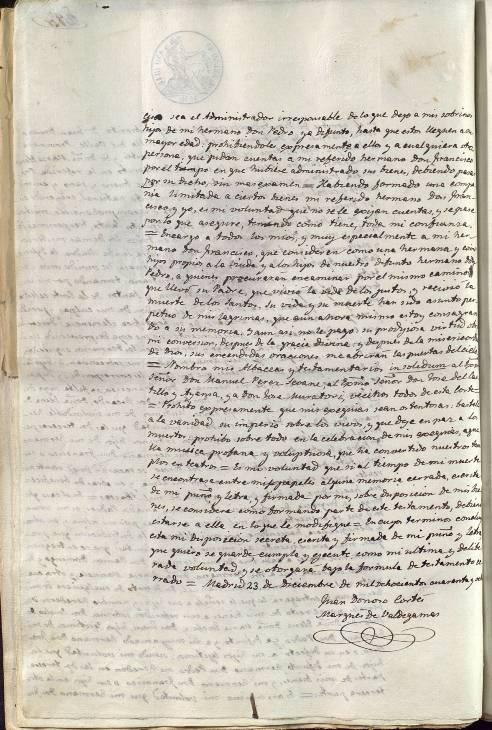 sea el Administrador irresponsable de lo que dejo a mis sobrinos
hijos de mi hermano Don Pedro, ya defunto, hasta que estos lleguen a la
mayor edad: prohibiendoles expresamente a ellos y a cualquiera otra
persona, que pidan cuentas a mi referido hermano Don Francisco
por el tiempo en que hubiese administrado sus bienes, debiendo pasar
por su dicho, sin mas examen = Habiendo formado una compa
ñia limitada a ciertos bienes mi referido hermano Don Fran
cisco y yo, es mi voluntad que no se le exijan cuentas, y se pase
por lo que asegure, teniendo como tiene, toda mi confianza
= Encargo a todos los mios, y muy especialmente a mi her
mano Don Francisco, que consideren como una hermana y como
hijos propios a la viuda y a los hijos de nuestro difunto hermano Don
Pedro, a quienes procuraran encaminar por el mismo camino
que llevó su Padre, que vivió la vida de los justos, y recibió la
muerte de los Santos. Su vida y su muerte han sido asunto per
petuo de mis lagrimas, que aun ahora mismo estoy consagran
do a su memoria. Y aun asi no le pago: su prodijiosa virtud obró
mi conversion, despues de la gracia divina: y despues de la misericordia
de Dios, sus encendidas oraciones me abriran las puertas del cielo
= Nombro mis Albaceas y testamentarios in solidum al Excmo
Señor Don Manuel Perez Seoane, al Excmo Señor Don Jose del Cas
tillo y Ayensa, y a Don Jose Muratori, vecinos todos de esta Corte
= Prohibo expresamente que mis exequias sean ostentosas: bastele
a la vanidad su imperio sobre los vivos, y que deje en paz a los
muertos: prohibo sobre todo en la celebracion de mis exequias, aque
lla musica profana y voluptuosa, que ha convertido nuestros tem
plos en teatros = Es mi voluntad que si al tiempo de mi muerte
se encontrase entre mis papeles alguna memoria cerrada, escrita
de mi puño y letra, y firmada por mi, sobre disposicion de mis bie
nes, se considere como formando parte de este testamento, debiendo
estarse a ella en lo que le modifique = En cuyos terminos concluyo
esta mi disposicion secreta, escrita y firmada de mi puño y letra
que quiero se guarde, cumpla y ejecute como mi ultima y delibe
rada voluntad, y se otorgara bajo la formula de testamento ce
rrado = Madrid 23 de Diciembre de mil ochocientos cuarenta y
Juan Donoso Cortés
Marqués de Valdegamas